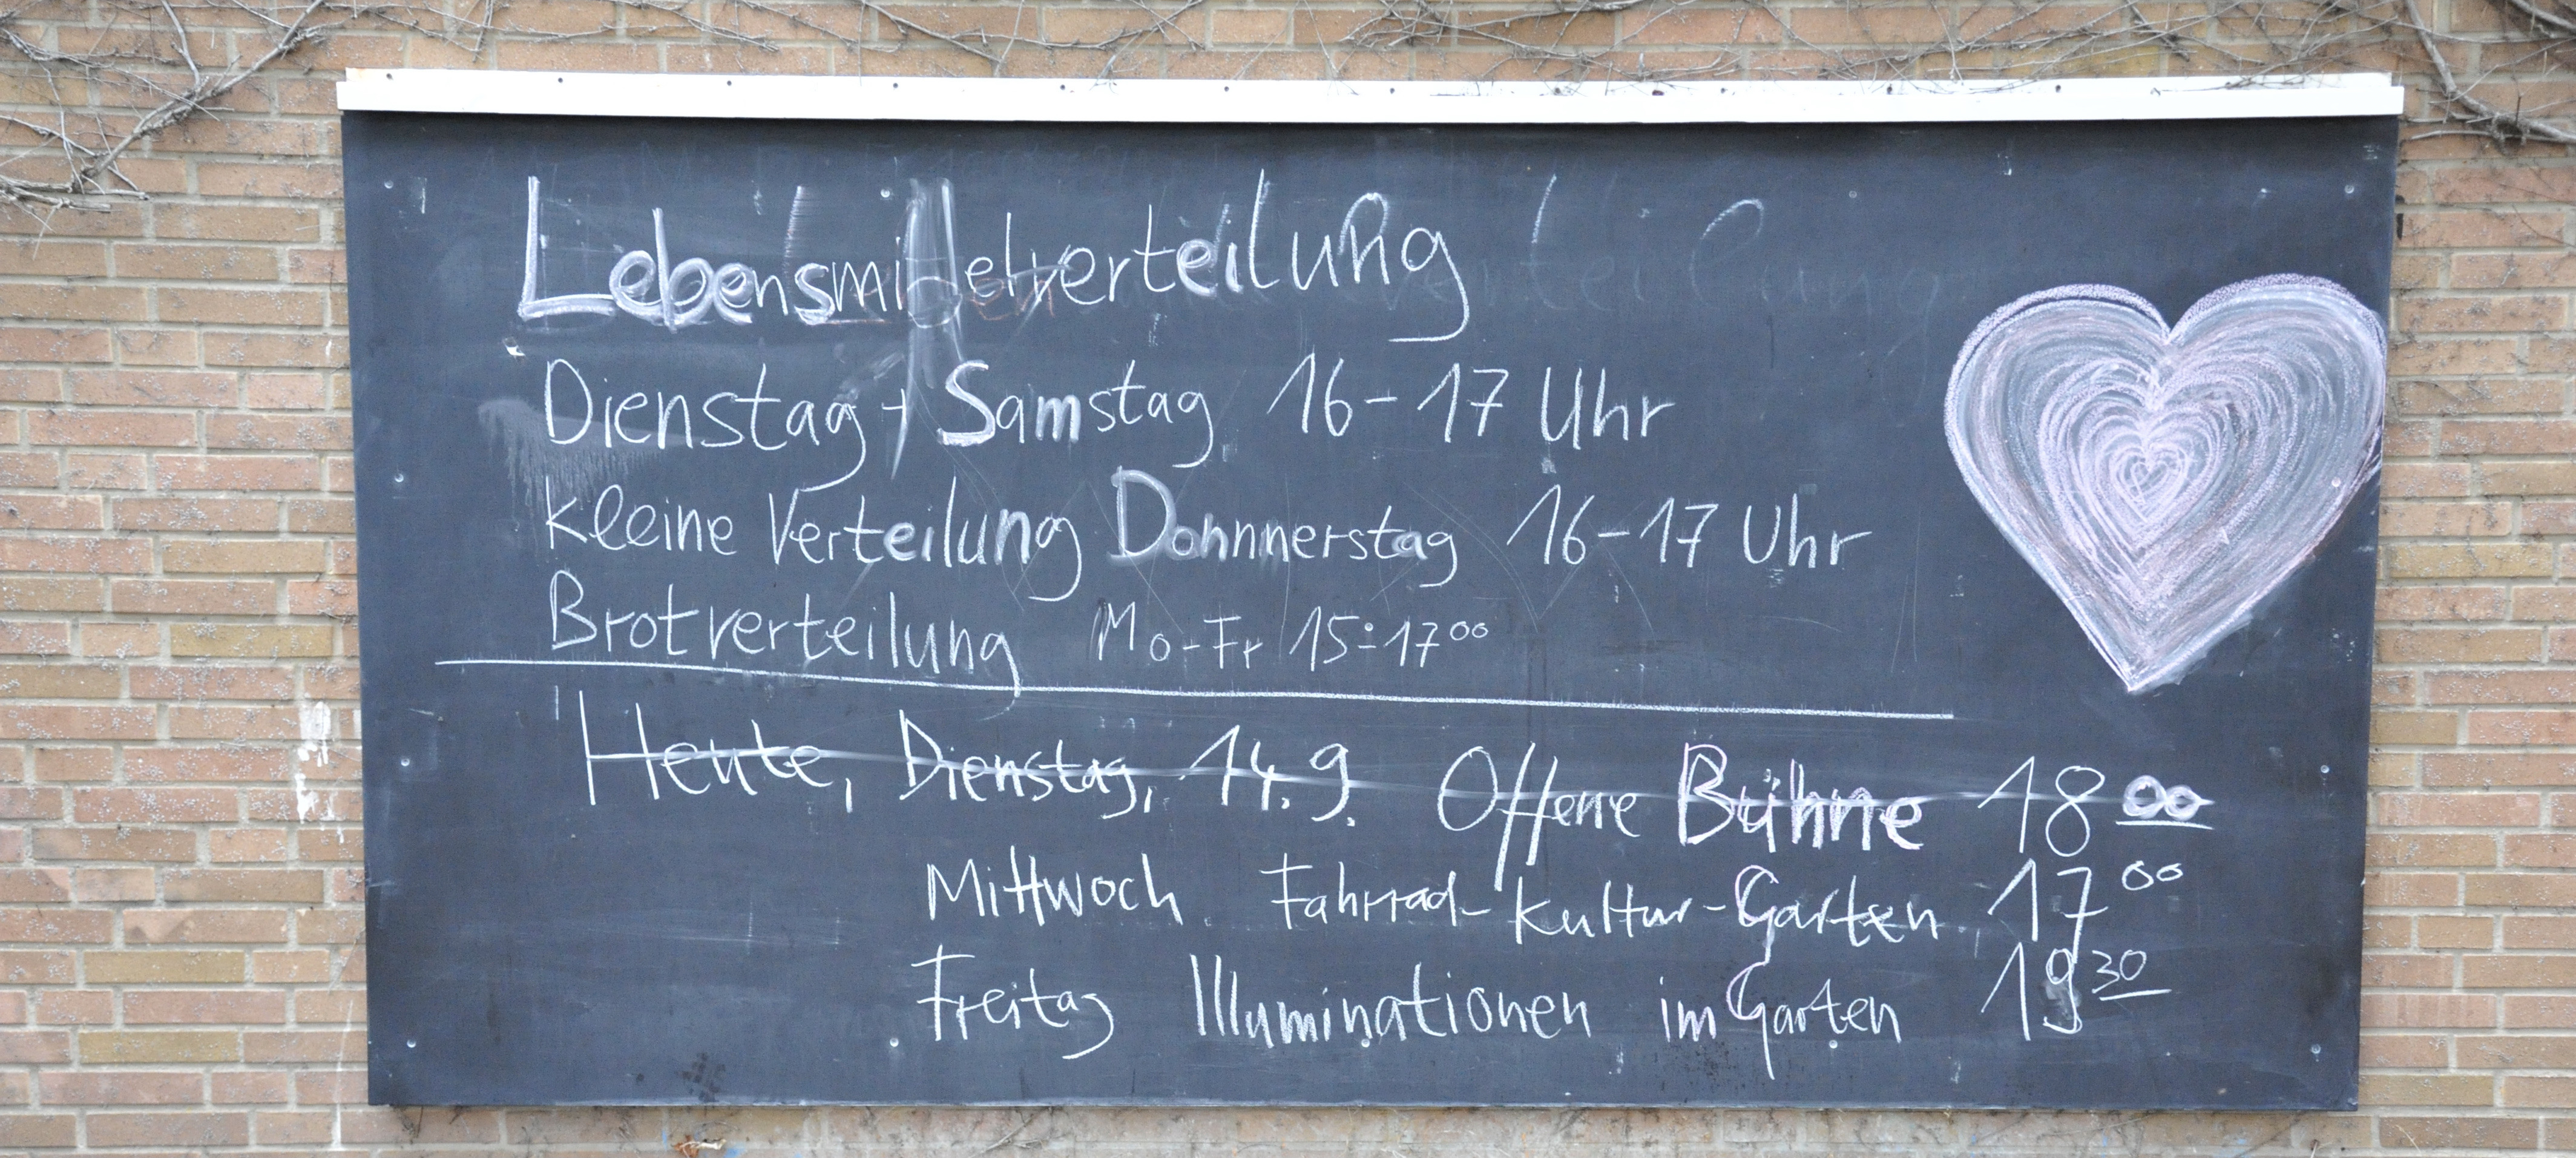 Lebensmittelverteilung
Dienstag + Samstag 16-17 Uhr
kleine Verteilung Donnnerstag 16-17 Uhr
Brotverteilung Mo-Fr 15-17 00
Heute, Dienstag, 14.9. Offene Bühne 18 00
Mittwoch Fahrrad-Kultur-Garten 17 00
Freitag Illuminationen im Garten 19 30